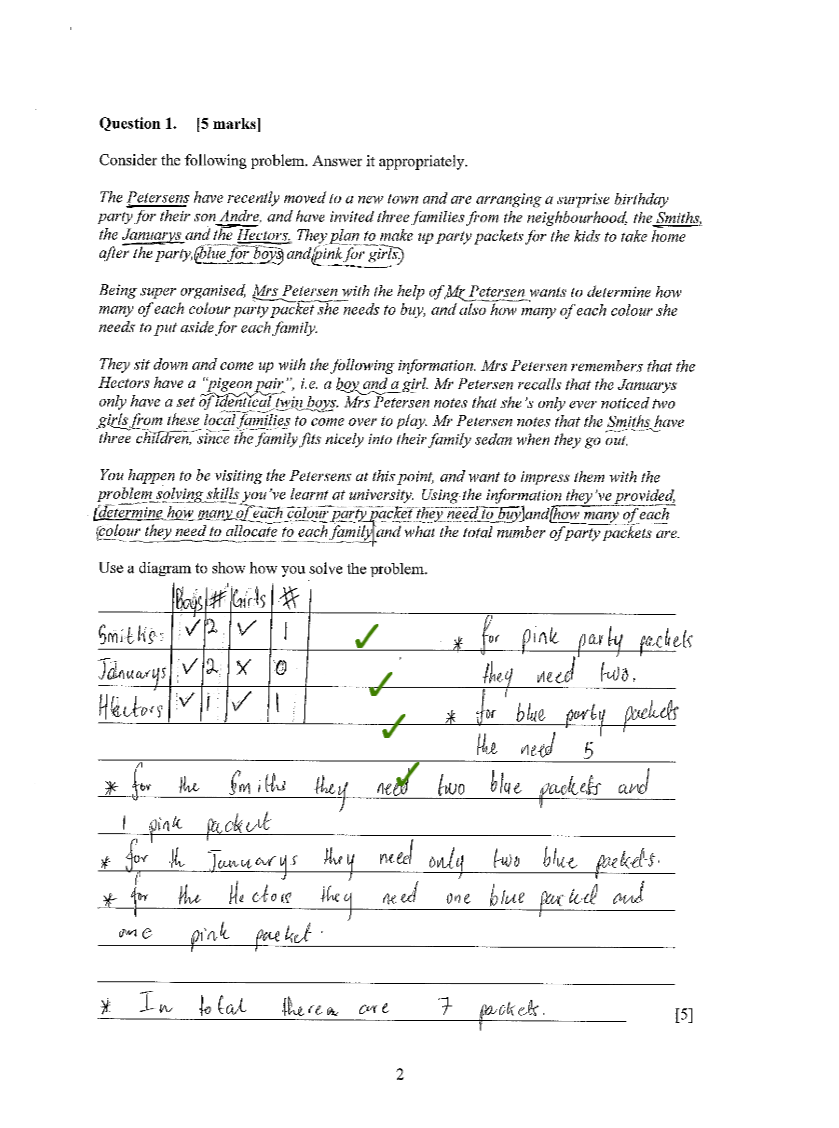 Question 1. [5 marks]
Consider the following problem. Answer it appropriately.
The Petersens have recently moved to a new town and are arranging a surprise birthday
party for their son Andre, and have invited three families from the neighbourhood, the Smiths,
the Januarys and the Hectors. They plan to make up party packets for the kids to take home
after the party, blue for boys and pink for girls.
Being super organised, Mrs Petersen with the help of Mr Petersen wants to determine how
many of each colour party packet she needs to buy, and also how many of each colour she
needs to put aside for each family.
They sit down and come up with the following information. Mrs Petersen remembers that the
Hectors have a "pigeon pair", i.e. a boy and a girl. Mr Petersen recalls that the Januarys
only have a set of identical twin boys. Mrs Petersen notes that she's only ever noticed two
girls from these local families to come over to play. Mr Petersen notes that the Smiths have
three children, since the family fits nicely into their family sedan when they go out.
You happen to be visiting the Petersens at this point, and want to impress them with the
problem solving skills you've learnt at university. Using the information they've provided,
determine how many of each colour party packet they need to buy and how many of each
colour they need to allocate to each family and what the total number of party packets are.
Use a diagram to show how you solve the problem.
Boys # Girls #
Smiths: ✓ 2 ✓ 1
Januarys ✓ 2 x 0
Hectors ✓ 1 ✓ 1
* for pink party packets
they need two.
* for blue party packets
the need 5
* for the Smiths they need two blue packets and
1 pink packet
* for th Januarys they need only two blue packets.
* for the Hectors they need one blue packed and
one pink packet.
* In total there are 7 packets.
[5]
2